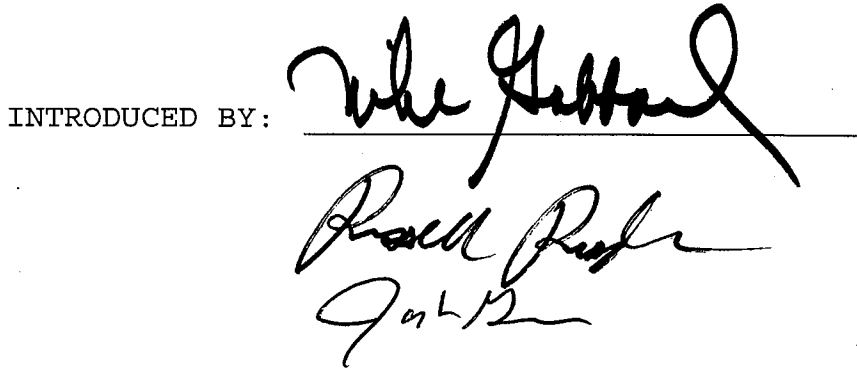 INTRODUCED BY: Mike Gabbard
Russell Ruderman
Josh Green